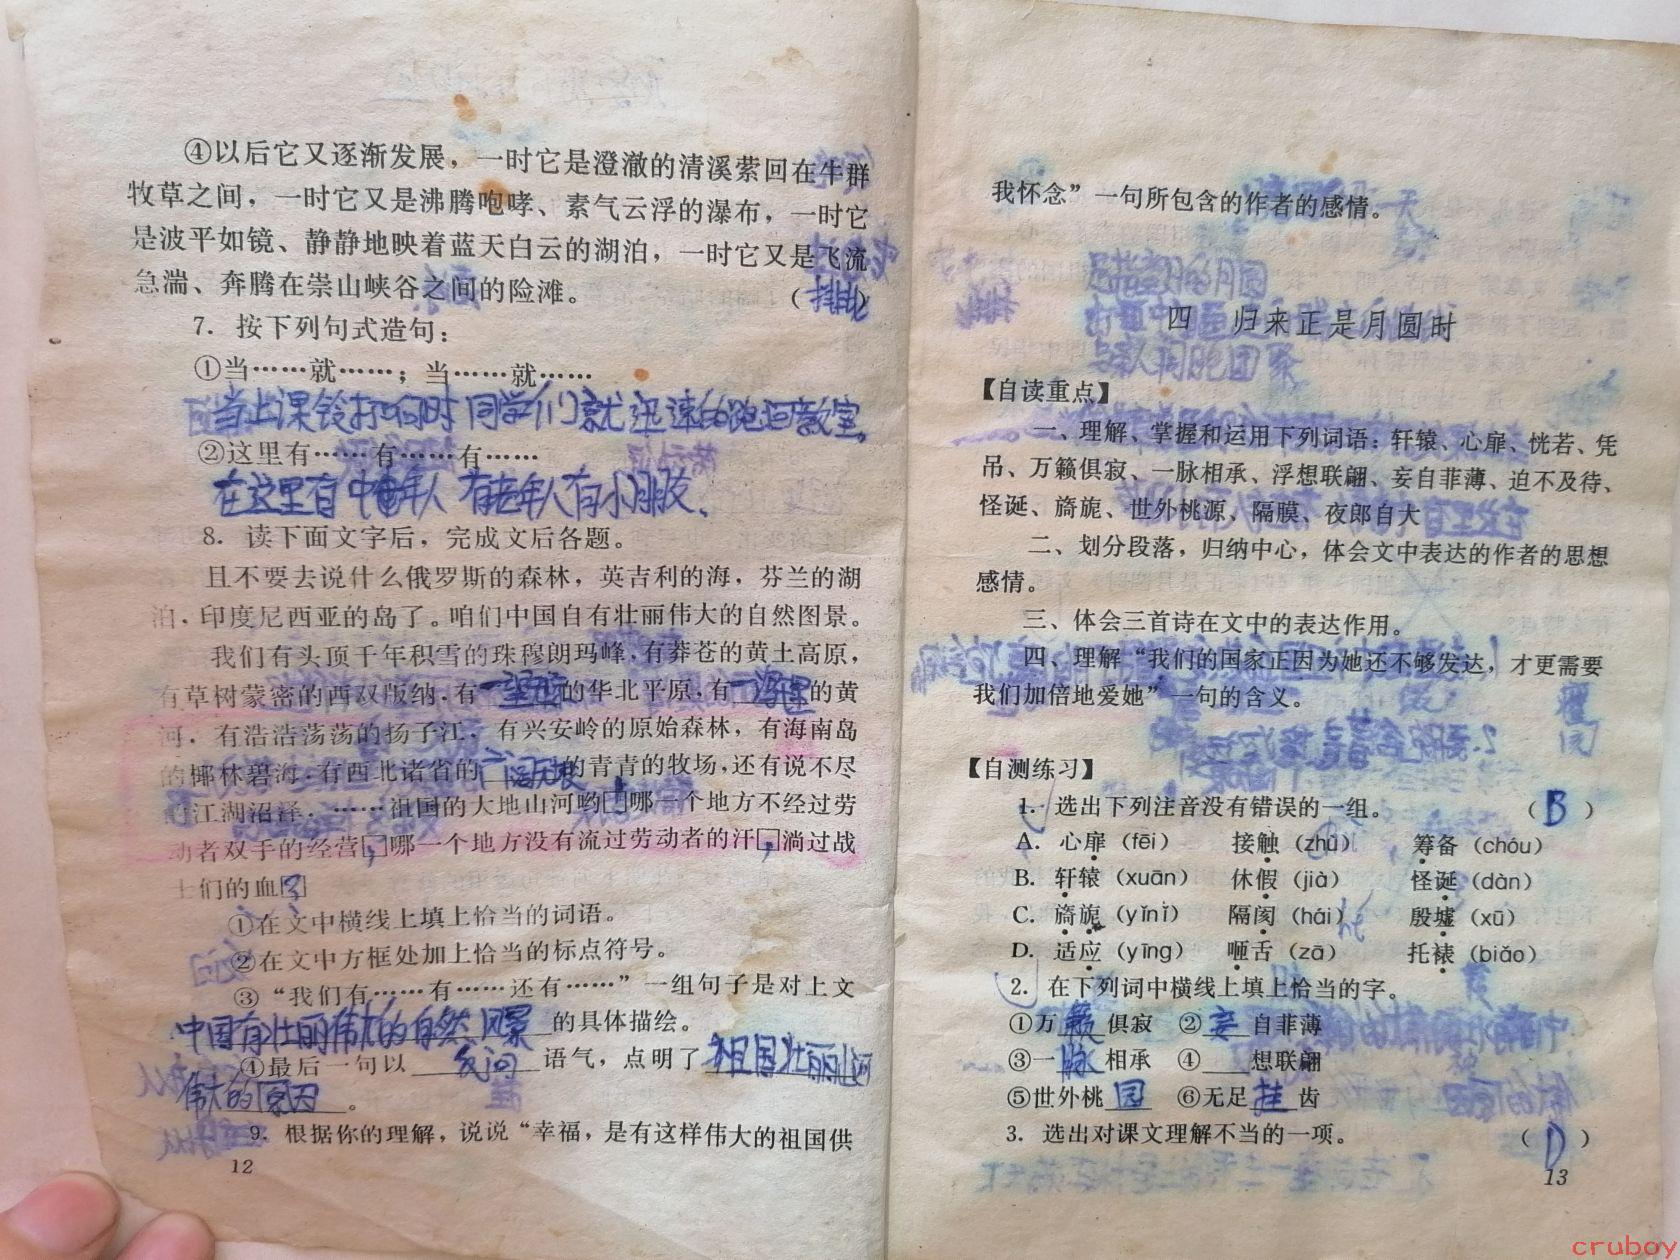 ④以后它又逐渐发展，一时它是澄澈的清溪萦回在牛群
牧草之间，一时它又是沸腾咆哮、素气云浮的瀑布，一时它
是波平如镜、静静地映着蓝天白云的湖泊，一时它又是飞流
急湍、奔腾在崇山峡谷之间的险滩。（排比）
7. 按下列句式造句：
①当……就……；当……就……
当上课铃打响时 同学们就迅速的跑回教室。
②这里有……有……有……
在这里有中年人 有老年人有小朋友、
8. 读下面文字后，完成文后各题。
且不要去说什么俄罗斯的森林，英吉利的海，芬兰的湖
泊，印度尼西亚的岛了。咱们中国自有壮丽伟大的自然图景。
我们有头顶千年积雪的珠穆朗玛峰，有莽苍的黄土高原，
有草树蒙密的西双版纳，有一望无际的华北平原，有一泻千里的黄
河，有浩浩荡荡的扬子江，有兴安岭的原始森林，有海南岛
的椰林碧海，有西北诸省的广阔无垠的青青的牧场，还有说不尽
的江湖沼泽，……祖国的大地山河哟□！哪一个地方不经过劳
动者双手的经营□，哪一个地方没有流过劳动者的汗□，淌过战
士们的血□？
①在文中横线上填上恰当的词语。
②在文中方框处加上恰当的标点符号。
③“我们有……有……还有……”一组句子是对上文
中国有壮丽伟大的自然风景的具体描绘。
④最后一句以 反问 语气，点明了 祖国壮丽山河
伟大的原因。
9. 根据你的理解，说说“幸福，是有这样伟大的祖国供
12
我怀念”一句所包含的作者的感情。
四 归来正是月圆时
与家人团聚
【自读重点】
一、理解、掌握和运用下列词语：轩辕、心扉、恍若、凭
吊、万籁俱寂、一脉相承、浮想联翩、妄自菲薄、迫不及待、
怪诞、旖旎、世外桃源、隔膜、夜郎自大
二、划分段落，归纳中心，体会文中表达的作者的思想
感情。
三、体会三首诗在文中的表达作用。
四、理解“我们的国家正因为她还不够发达，才更需要
我们加倍地爱她”一句的含义。
【自测练习】
1. 选出下列注音没有错误的一组。（B）
A. 心扉（fēi） 接触（zhù） 筹备（chóu）
B. 轩辕（xuān） 休假（jià） 怪诞（dàn）
C. 旖旎（yǐnǐ） 隔阂（hái） hé 殷墟（xū）
D. 适应（yīng） 咂舌（zā） 托裱（biǎo）
2. 在下列词中横线上填上恰当的字。
①万 籁 俱寂 ② 妄 自菲薄
③一 脉 相承 ④____想联翩
⑤世外桃 园 ⑥无足 挂 齿
3. 选出对课文理解不当的一项。（D）
13
cruboy